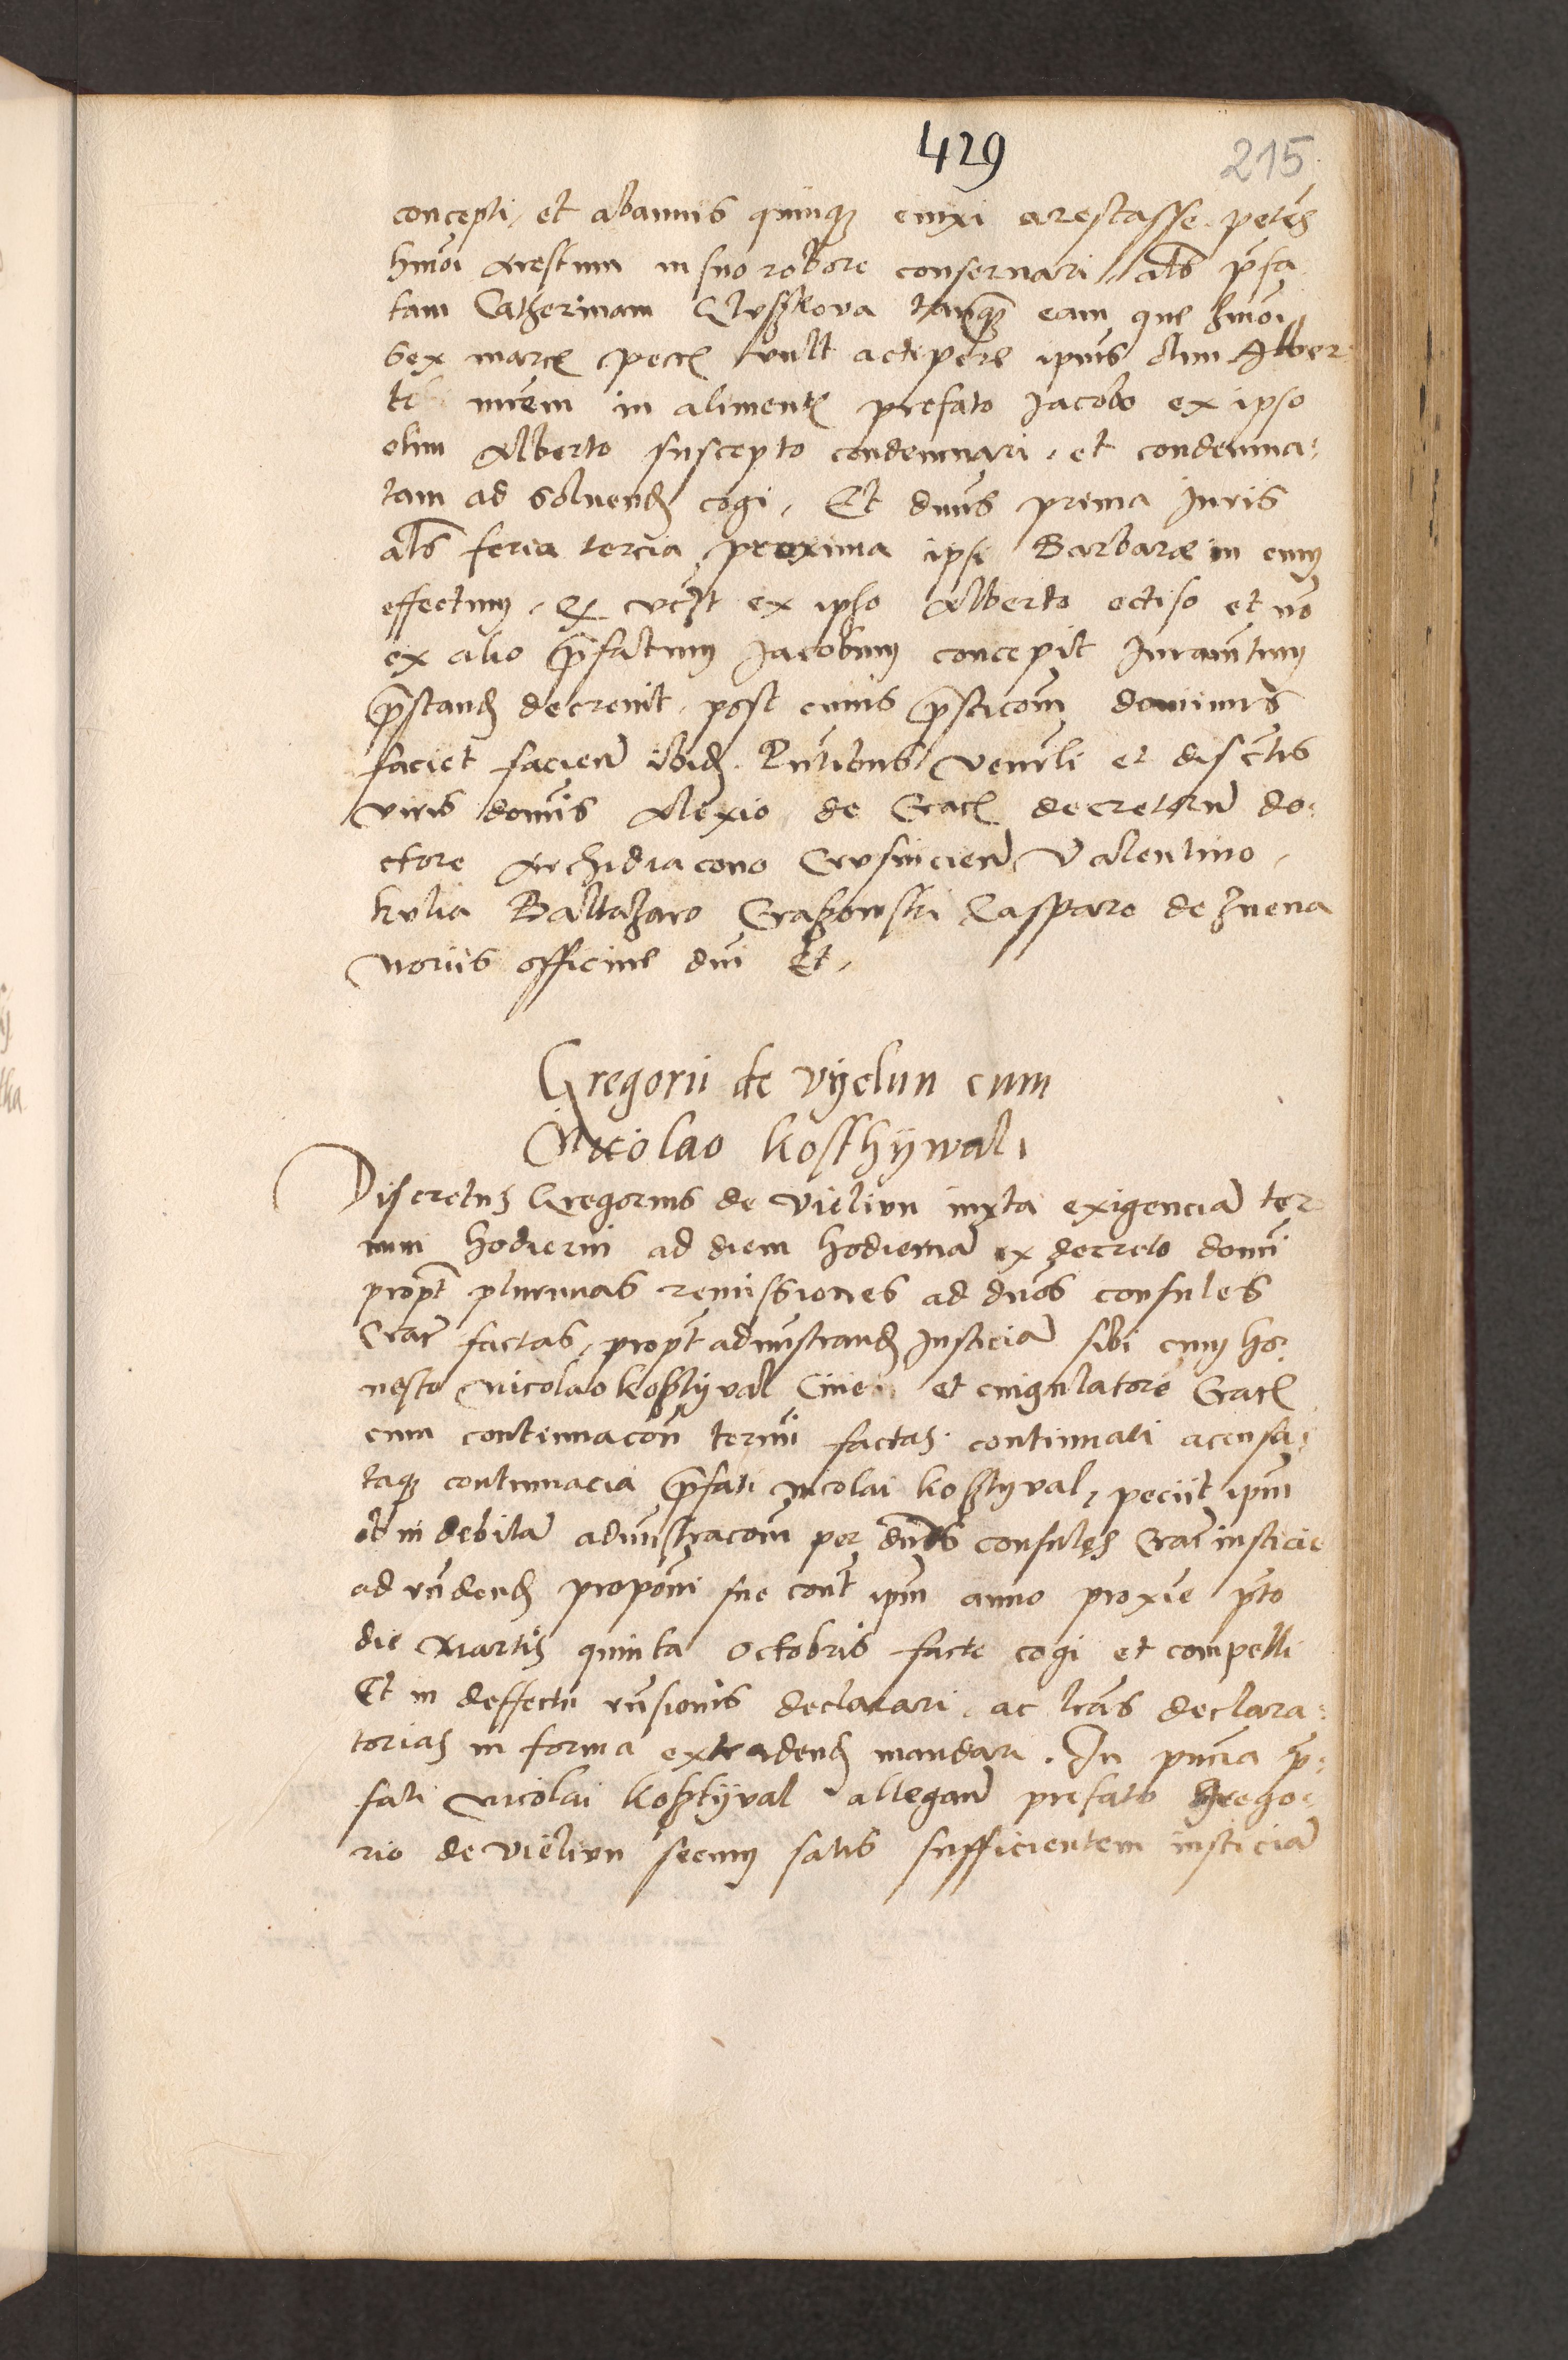 429
215
concepti, et abannis quinque enixi arestasse. petens
hmoi Arestum in suo robore conservari, als prefa
tam Catherinam tanquam eam que hmoi
sex marcas peccu vult accipere ipius olim Alber
ti mrem in alimentis prefato Jacobo ex ipso
olim Alberto suscepto condemnari, et condemna:
tam ad solvend cogi, Et dnus prema Juris
als feria tercia proxima ipsi Barbare in eum
effectum, q vczt ex ipso Alberto occiso et no
ex alio prefatum Jacobum concepit Juramtum
prestand decrevit, post cuius prestacom dominus
faciet faciena ibid. Pntibus Venerli et discretis
viris domis Alexio de Crac decretorum do:
ctore Archidiacono Crusviciena Valentino
kulia Baltazaro Grabowski Casparo de Znena
noriis officine dni Et,
Gregorii de Vyelun cum
Nicolao kosthywal
Discretus Gregorius de Vielivn iuxta exigencia ter
mini hodierni ad diem hodierna ex decreto domi
propt plurimas remissiones ad dnos consules
Crac factas, propt admstrand Justicia sibi cum ho:
nesto Nicolao kosztyval Cive et cingulatore Crac
cum continuacon termi factas continuati acensa:
taque contumacia prefati Nicolai kosztyval, peciit ipm
ob in debita admstracom per dnos consules Crac iusticie
ad rndend proponi sue cont ipm anno proxie pto
die Martis quinta Octobris facte cogi et compelli
Et in deffectu rnsionis declarari, ac lras declara:
torias in forma extradend mandari. In pncia pre:
fati Nicolai kosztyval allegan prefato Grego:
rio de Vielivn secum satis sufficientem iusticia